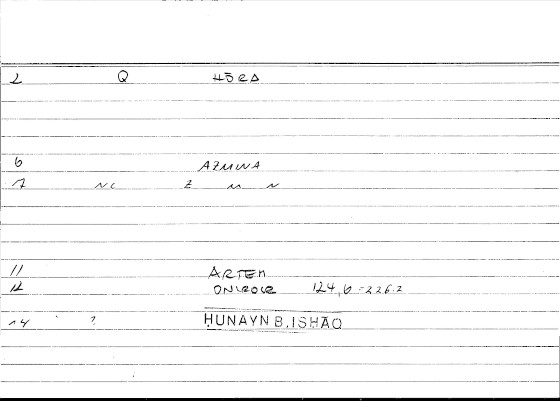 2 Q HŌRA
6 AZMINA
7 NC Z M N
11 ARTEM
12 ONIROCR 124,6 = 226.2
14 ?
ḤUNAYN B. ISḤĀQ